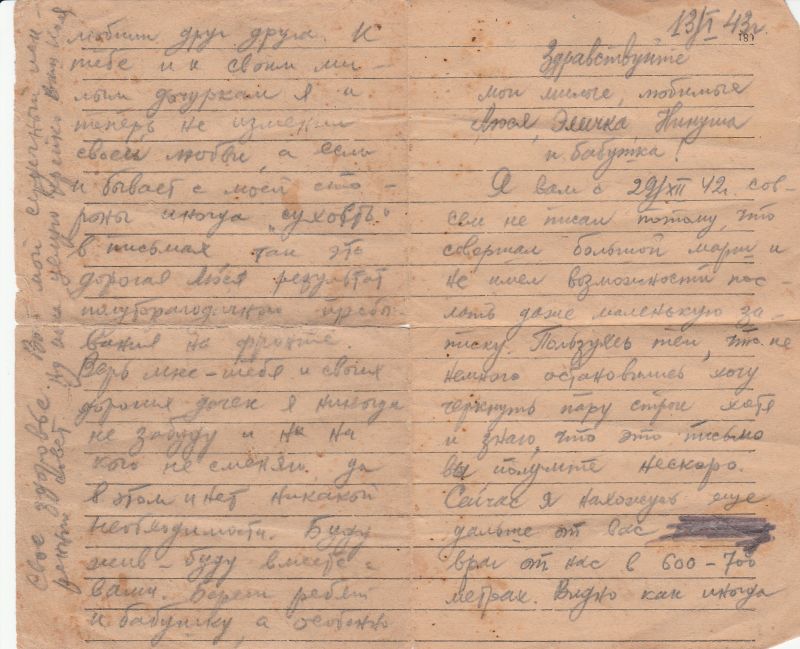 13/I 43г.
Здравствуйте
мои милые, любимые
Люся, Эличка, Нинуша
и бабушка!
Я вам с 29/XII 42г. сов-
сем не писал потому, что
совершал большой марш и
не имел возможности пос-
лать даже маленькую за-
писку. Пользуясь тем, что не
немного остановились хочу
черкнуть пару строк хотя
и знаю, что это письмо
вы получите нескоро.
Сейчас я нахожусь еще
дальше от вас
враг от нас в 600-700
метрах. Видно как иногда
любили друг друга. К
тебе и к своим ми-
лым дочуркам я и
теперь не изменил
своей любви, а если
и бывает с моей сто-
роны иногда "сухость"
в письмах, так это
дорогая Люся результат
полуторагодичного пребы-
вания на фронте.
Верь мне - тебя и своих
дорогих дочек я никогда
не забуду и ни на
кого не сменяю, да
в этом и нет никакой
необходимости. Буду
жив - буду вместе с
вами. Береги ребят
и бабушку, а особенно
свое здоровье. Вот мой сердечный иск-
ренний совет. Ну пока целую крепко Ваш Коля